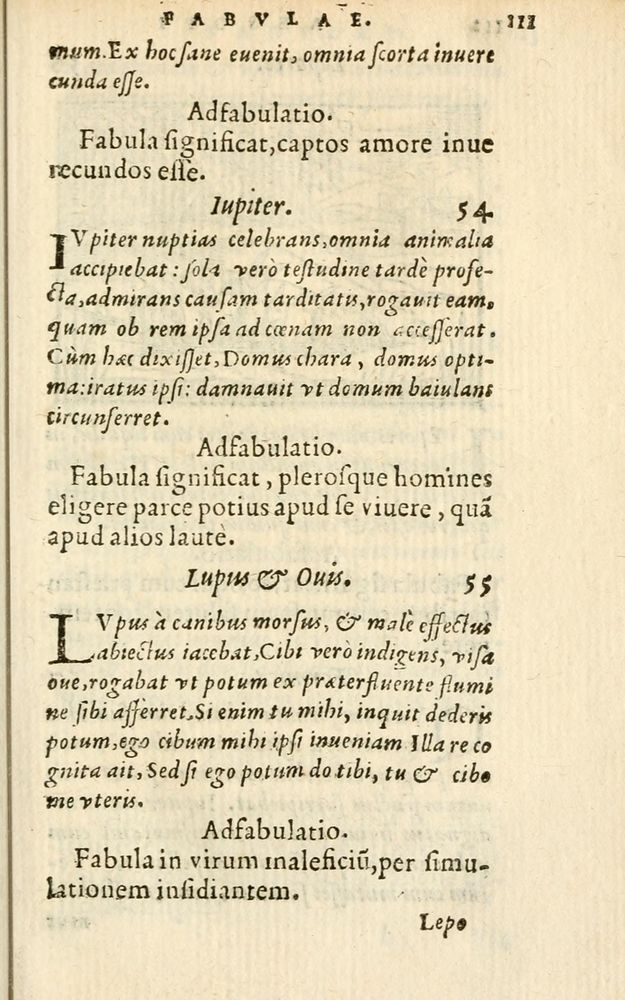 FABVLAE. 111
mum. Ex hoc ſane euenit, omnia ſcorta inuere
cunda eſſe.
Adfabulatio.
Fabula ſignificat, captos amore inue
recundos eſſe.
Iupiter. 54
IVpiter nuptias celebrans, omnia animalia
accipiebat: ſola verò teſtudine tardè profe-
cta, admirans cauſam tarditatis, rogauit eam,
quam ob rem ipſa ad cœnam non acceſſerat.
Cùm hæc dixiſſet, Domus chara, domus opti-
ma: iratus ipſi: damnauit vt domum baiulans
circunferret.
Adfabulatio.
Fabula ſignificat, pleroſque homines
eligere parce potius apud ſe viuere, quã
apud alios lautè.
Lupus & Ouis. 55
LVpus à canibus morſus, & malè effectus
abiectus iacebat, Cibi verò indigens, viſa
oue, rogabat vt potum ex præterfluente flumi
ne ſibi afferret, Si enim tu mihi, inquit dederis
potum, ego cibum mihi ipſi inueniam Illa re co
gnita ait, Sed ſi ego potum do tibi, tu & cibo
me vteris.
Adfabulatio.
Fabula in virum maleficiũ, per ſimu-
lationem inſidiantem.
Lepo